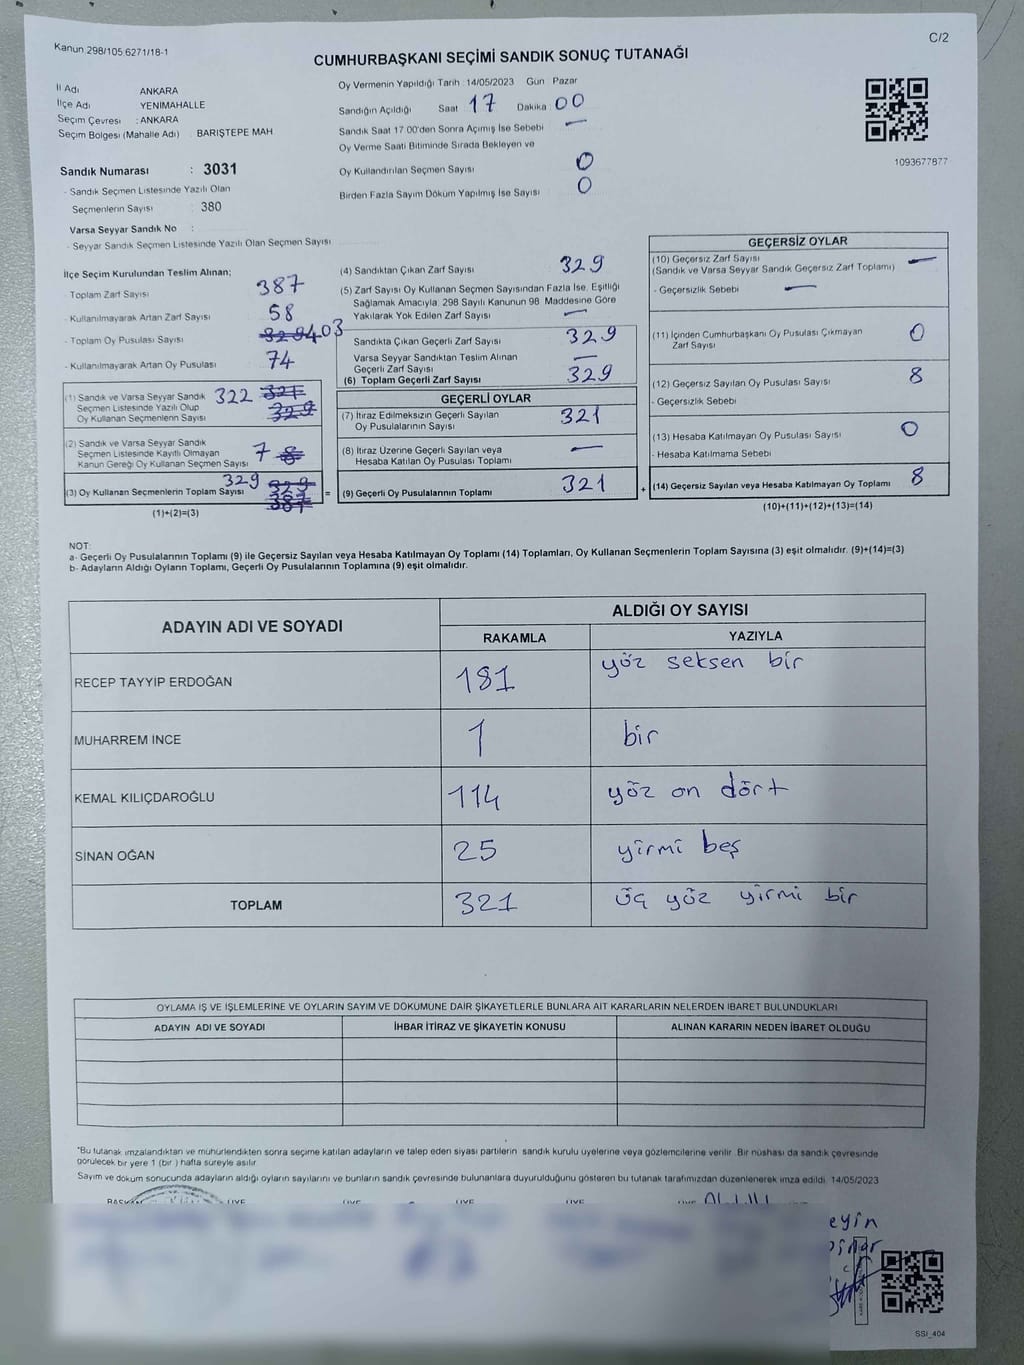 Kanun 298/105 6271/18-1
C/2
CUMHURBAŞKANI SEÇİMİ SANDIK SONUÇ TUTANAĞI
İl Adı ANKARA
İlçe Adı YENİMAHALLE
Seçim Çevresi : ANKARA
Seçim Bölgesi (Mahalle Adı) BARIŞTEPE MAH
Sandık Numarası : 3031
- Sandık Seçmen Listesinde Yazılı Olan
Seçmenlerin Sayısı 380
Varsa Seyyar Sandık No :
- Seyyar Sandık Seçmen Listesinde Yazılı Olan Seçmen Sayısı
Oy Vermenin Yapıldığı Tarih 14/05/2023 Gün Pazar
Sandığın Açıldığı Saat 17 Dakika 00
Sandık Saat 17 00'den Sonra Açımış İse Sebebi —
Oy Verme Saati Bitiminde Sırada Bekleyen ve
Oy Kullandırılan Seçmen Sayısı 0
Birden Fazla Sayım Döküm Yapılmış İse Sayısı 0
1093677877
İlçe Seçim Kurulundan Teslim Alınan;
- Toplam Zarf Sayısı 387
- Kullanılmayarak Artan Zarf Sayısı 58
- Toplam Oy Pusulası Sayısı 329 403
- Kullanılmayarak Artan Oy Pusulası 74
(1) Sandık ve Varsa Seyyar Sandık 322 321
Seçmen Listesinde Yazılı Olup 329
Oy Kullanan Seçmenlerin Sayısı
(2) Sandık ve Varsa Seyyar Sandık
Seçmen Listesinde Kayıtlı Olmayan 7 8
Kanun Gereği Oy Kullanan Seçmen Sayısı
(3) Oy Kullanan Seçmenlerin Toplam Sayısı 329 329 =
(1)+(2)=(3)
(4) Sandıktan Çıkan Zarf Sayısı 329
(5) Zarf Sayısı Oy Kullanan Seçmen Sayısından Fazla İse, Eşitliği
Sağlamak Amacıyla, 298 Sayılı Kanunun 98. Maddesine Göre
Yakılarak Yok Edilen Zarf Sayısı —
Sandıkta Çıkan Geçerli Zarf Sayısı 329
Varsa Seyyar Sandıktan Teslim Alınan
Geçerli Zarf Sayısı —
(6) Toplam Geçerli Zarf Sayısı 329
GEÇERLİ OYLAR
(7) İtiraz Edilmeksizin Geçerli Sayılan
Oy Pusulalarının Sayısı 321
(8) İtiraz Üzerine Geçerli Sayılan veya
Hesaba Katılan Oy Pusulası Toplamı —
(9) Geçerli Oy Pusulalarının Toplamı 321 +
GEÇERSİZ OYLAR
(10) Geçersiz Zarf Sayısı —
(Sandık ve Varsa Seyyar Sandık Geçersiz Zarf Toplamı)
- Geçersizlik Sebebi —
(11) İçinden Cumhurbaşkanı Oy Pusulası Çıkmayan
Zarf Sayısı 0
(12) Geçersiz Sayılan Oy Pusulası Sayısı 8
- Geçersizlik Sebebi
(13) Hesaba Katılmayan Oy Pusulası Sayısı 0
- Hesaba Katılmama Sebebi
(14) Geçersiz Sayılan veya Hesaba Katılmayan Oy Toplamı 8
(10)+(11)+(12)+(13)=(14)
NOT:
a- Geçerli Oy Pusulalarının Toplamı (9) ile Geçersiz Sayılan veya Hesaba Katılmayan Oy Toplamı (14) Toplamları, Oy Kullanan Seçmenlerin Toplam Sayısına (3) eşit olmalıdır. (9)+(14)=(3)
b- Adayların Aldığı Oyların Toplamı, Geçerli Oy Pusulalarının Toplamına (9) eşit olmalıdır.
ADAYIN ADI VE SOYADI
ALDIĞI OY SAYISI
RAKAMLA YAZIYLA
RECEP TAYYİP ERDOĞAN 181 yöz seksen bir
MUHARREM İNCE 1 bir
KEMAL KILIÇDAROĞLU 114 yöz on dört
SİNAN OĞAN 25 yirmi beş
TOPLAM 321 üç yöz yirmi bir
OYLAMA İŞ VE İŞLEMLERİNE VE OYLARIN SAYIM VE DÖKÜMÜNE DAİR ŞİKAYETLERLE BUNLARA AİT KARARLARIN NELERDEN İBARET BULUNDUKLARI
ADAYIN ADI VE SOYADI İHBAR İTİRAZ VE ŞİKAYETİN KONUSU ALINAN KARARIN NEDEN İBARET OLDUĞU
*Bu tutanak imzalandıktan ve mühürlendikten sonra seçime katılan adayların ve talep eden siyasi partilerin sandık kurulu üyelerine veya gözlemcilerine verilir. Bir nüshası da sandık çevresinde
görülecek bir yere 1 (bir ) hafta süreyle asılır.
Sayım ve döküm sonucunda adayların aldığı oyların sayılarını ve bunların sandık çevresinde bulunanlara duyurulduğunu gösteren bu tutanak tarafımızdan düzenlenerek imza edildi. 14/05/2023
eyin
SSI_404